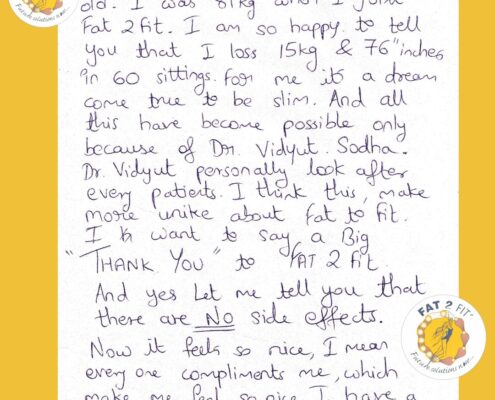 old. I was 81kg when I joint
Fat 2 Fit. I am so happy to tell
you that I loss 15kg & 76" inches
in 60 sittings. For me it's a dream
come true to be slim. And all
this have become possible only
because of Dr. Vidyut Sodha.
Dr. Vidyut personally look after
every patients. I think this, make
more unike about fat to fit.
I want to say a Big
"THANK YOU" to FAT 2 fit.
And yes Let me tell you that
there are NO side effects.
FAT 2 FIT
Now it feels so nice, I mean
every one compliments me, which
make me feel so nice I have a